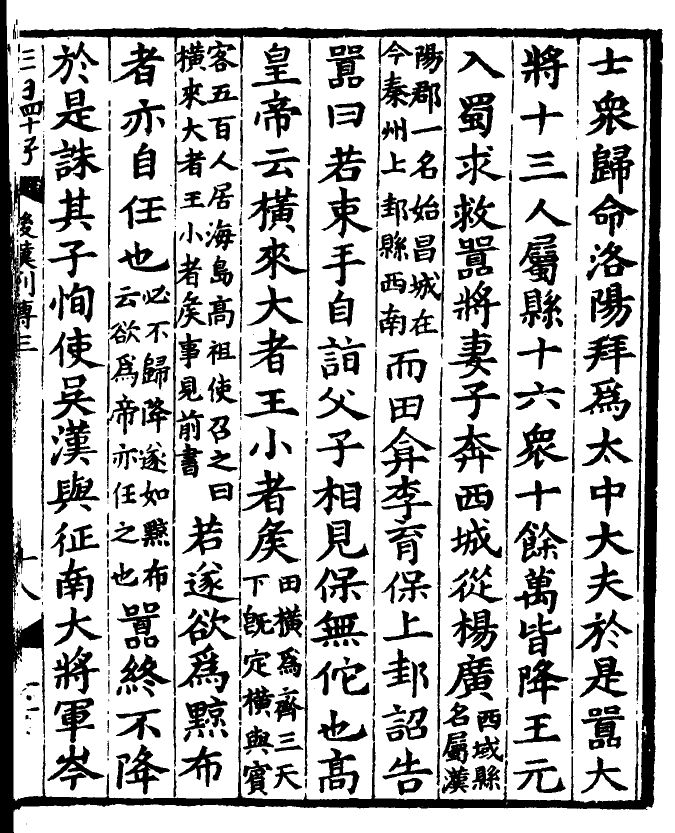 士衆歸命洛陽拜爲太中大夫於是囂大
將十三人屬縣十六衆十餘萬皆降王元
入蜀求救囂將妻子奔西城從楊廣西域縣名屬漢
陽郡一名始昌城在今秦州上邽縣西南而田弇李育保上邽詔告
囂曰若束手自詣父子相見保無佗也高
皇帝云橫來大者王小者矦田橫爲齊三天下旣定橫與賓
客五百人居海島高祖使召之曰橫來大者王小者矦事見前書若遂欲爲黥布
者亦自任也必不歸降遂如黥布云欲爲帝亦任之也囂終不降
於是誅其子恂使吳漢與征南大將軍岑
後漢列傳三